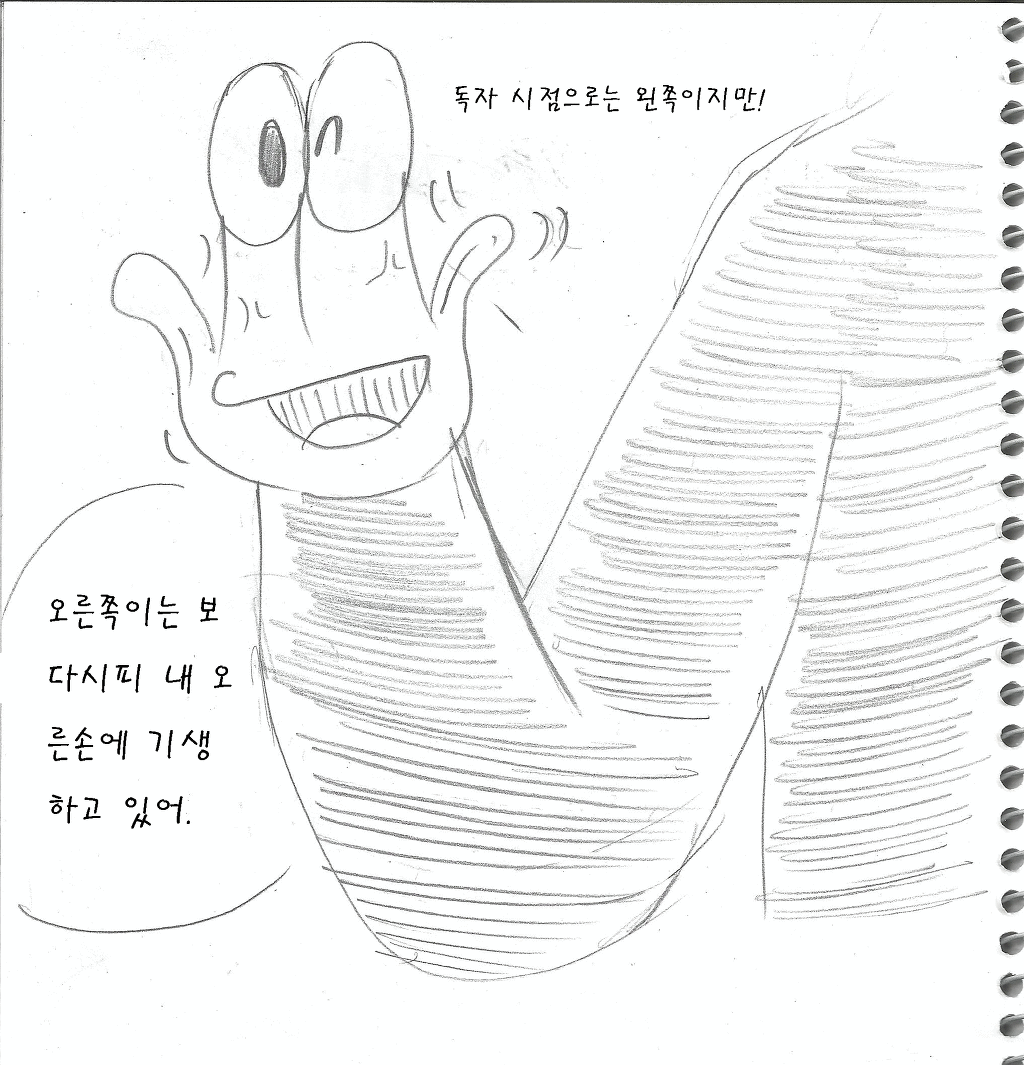 독자 시점으로는 왼쪽이지만!
오른쪽이는 보
다시피 내 오
른손에 기생
하고 있어.